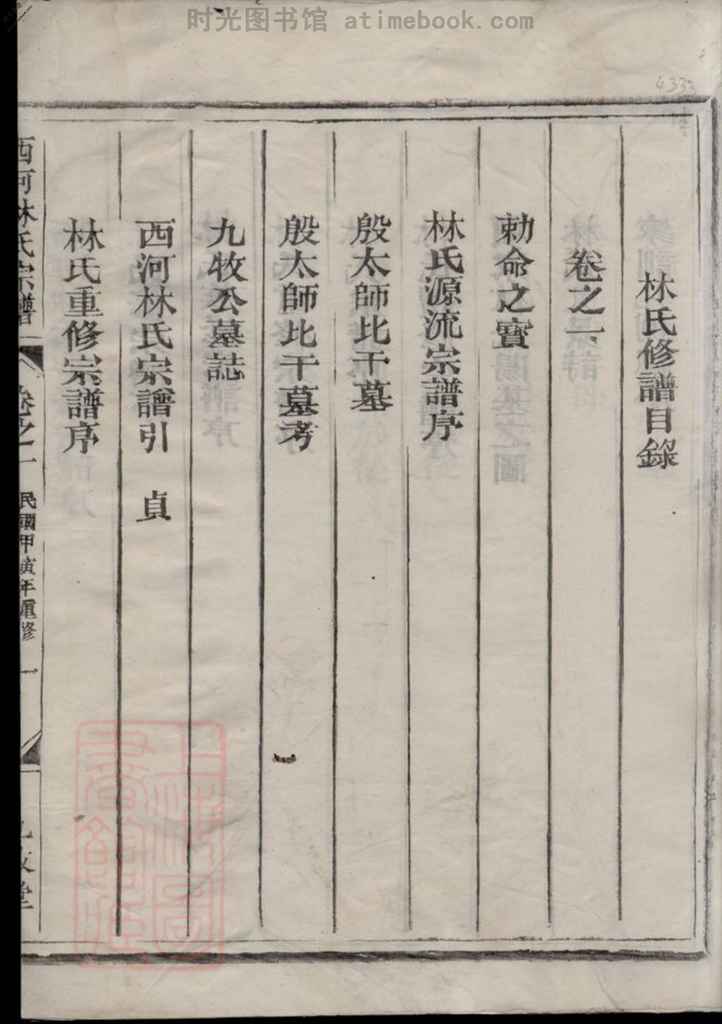 时光图书馆 atimebook.com
4333
林氏修譜目錄
卷之一
勅命之寶
林氏源流宗譜序
殷太師比干墓
殷太師比干墓考
九牧公墓誌
西河林氏宗譜引 貞
林氏重修宗譜序
西河林氏宗譜 卷之一 民國甲寅年重修 一 九牧堂